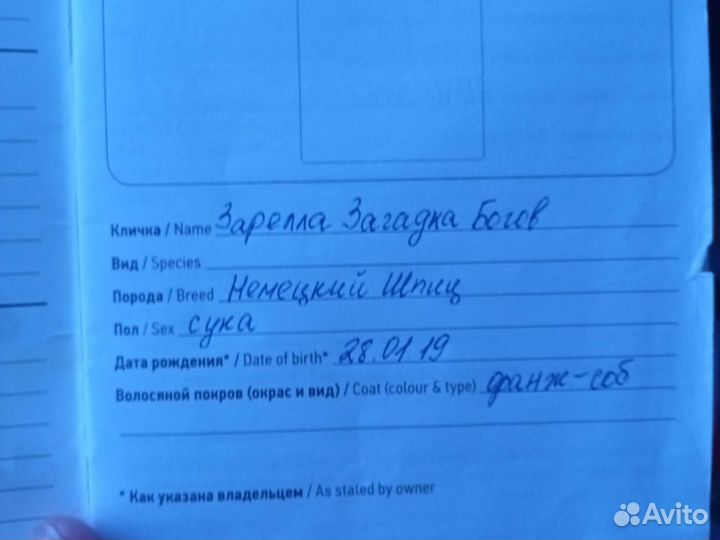 Кличка / Name Зарелла Загадка Богов
Вид / Species
Порода / Breed Немецкий Шпиц
Пол / Sex сука
Дата рождения* / Date of birth* 28.01.19
Волосяной покров (окрас и вид) / Coat (colour & type) оранж-соб
* Как указана владельцем / As stated by owner
Avito